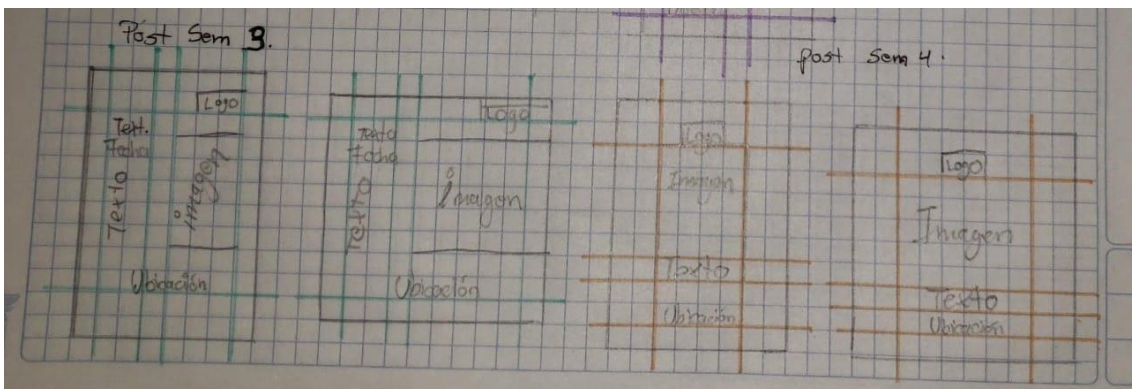 Post Sem 3.
Post Sem 4.
Logo
Text.
Fecha
Texto
imagen
Ubicación
Logo
Texto
Fecha
Texto
imagen
Ubicación
Logo
Imagen
Texto
Ubicación
Logo
Imagen
Texto
Ubicación